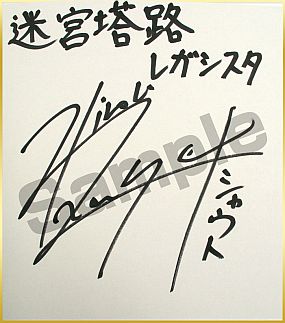 迷宮塔路
レガシスタ
Hiroki
Sample
シャウト